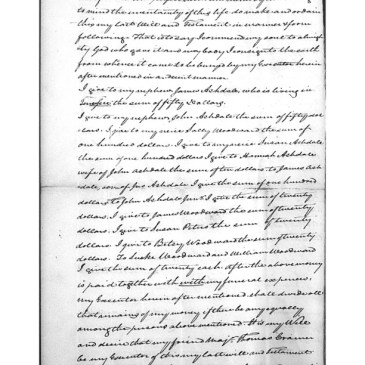 to mind the uncertainty of this life do make and ordain
this my last Will and Testament in manner & form
following. That is to say I recommend my soul to almigh
ty God who gave it and my body I consign to the earth
from whence it came to be buried by my Executor herein
after mentioned in a decent manner.
I give to my nephew James Ashdale, who is living in
the sum of fifty Dollars.
I give to my nephew John Ashdale the sum of fifty dol
lars. I give to my niece Sally Woodward the sum of
one hundred dollars. I give to my niece Susan Ashdale
the sum of one hundred dollars I give to Hannah Ashdale
wife of John Ashdale the sum of ten dollars. to James Ash
dale, son of Jas Ashdale. I give the sum of one hundred
dollars to John Ashdale Junr. I give the sum of twenty
dollars. I give to James Woodward the sum of twenty
dollars. I give to Susan Peters the sum of twenty
dollars. I give to Betsy Woodward the sum of twenty
dollars. To Luke Woodward and William Woodward
I give the sum of twenty each. After the above money
is paid together with with my funeral expenses,
my Executor herein after mentioned shall divide all
that remains of my money if there be any equally
among the persons above mentioned. It is my Will
and desire that my friend Majr. Thomas Cramer
be my Executor of this my last will and testament